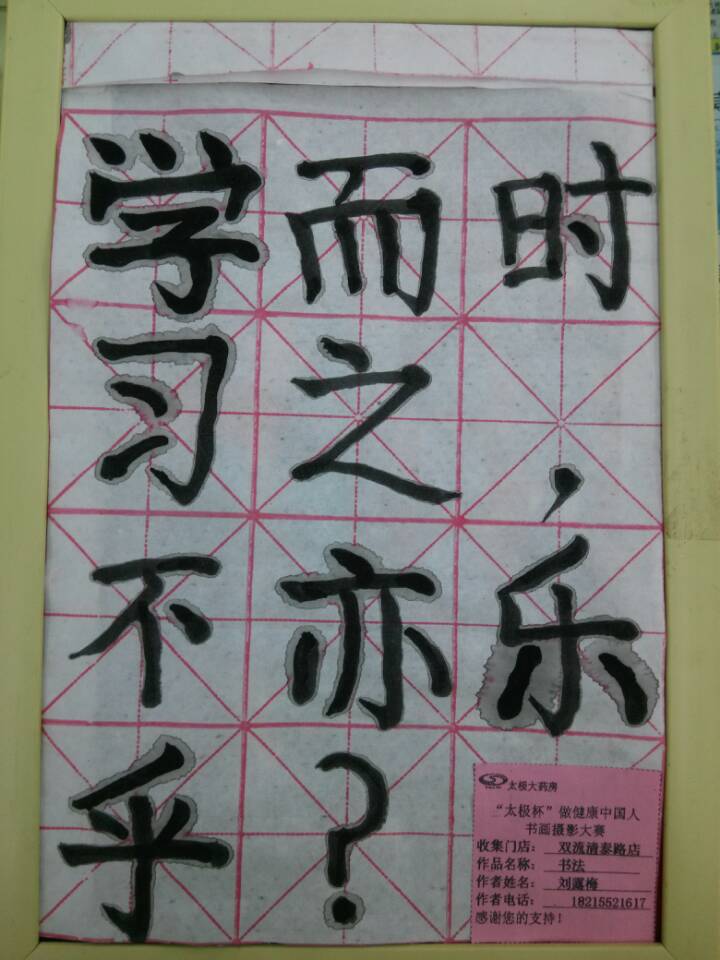 学而时
习之，
不亦乐
乎？
太极大药房
“太极杯”做健康中国人
书画摄影大赛
收集门店：双流清泰路店
作品名称：书法
作者姓名：刘露梅
作者电话：18215521617
感谢您的支持！